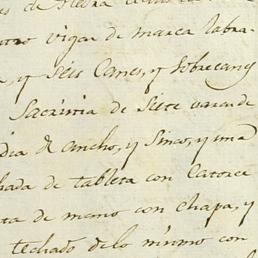 es de Piedra
tro vigas de marca labra-
, y Seis Canes, y Sobrecanes
Sacristia de Siete varas de
dia de ancho, y Sinco, y una
hada de tableta con Catorce
ta de mano con chapa, y
techado delo mismo con